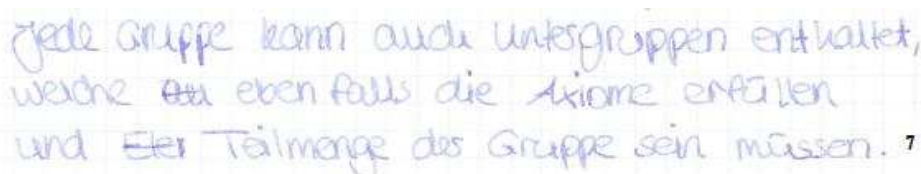 Jede Gruppe kann auch Untergruppen enthaltet,
welche eben falls die Axiome erfüllen
und Teilmenge der Gruppe sein müssen. 7